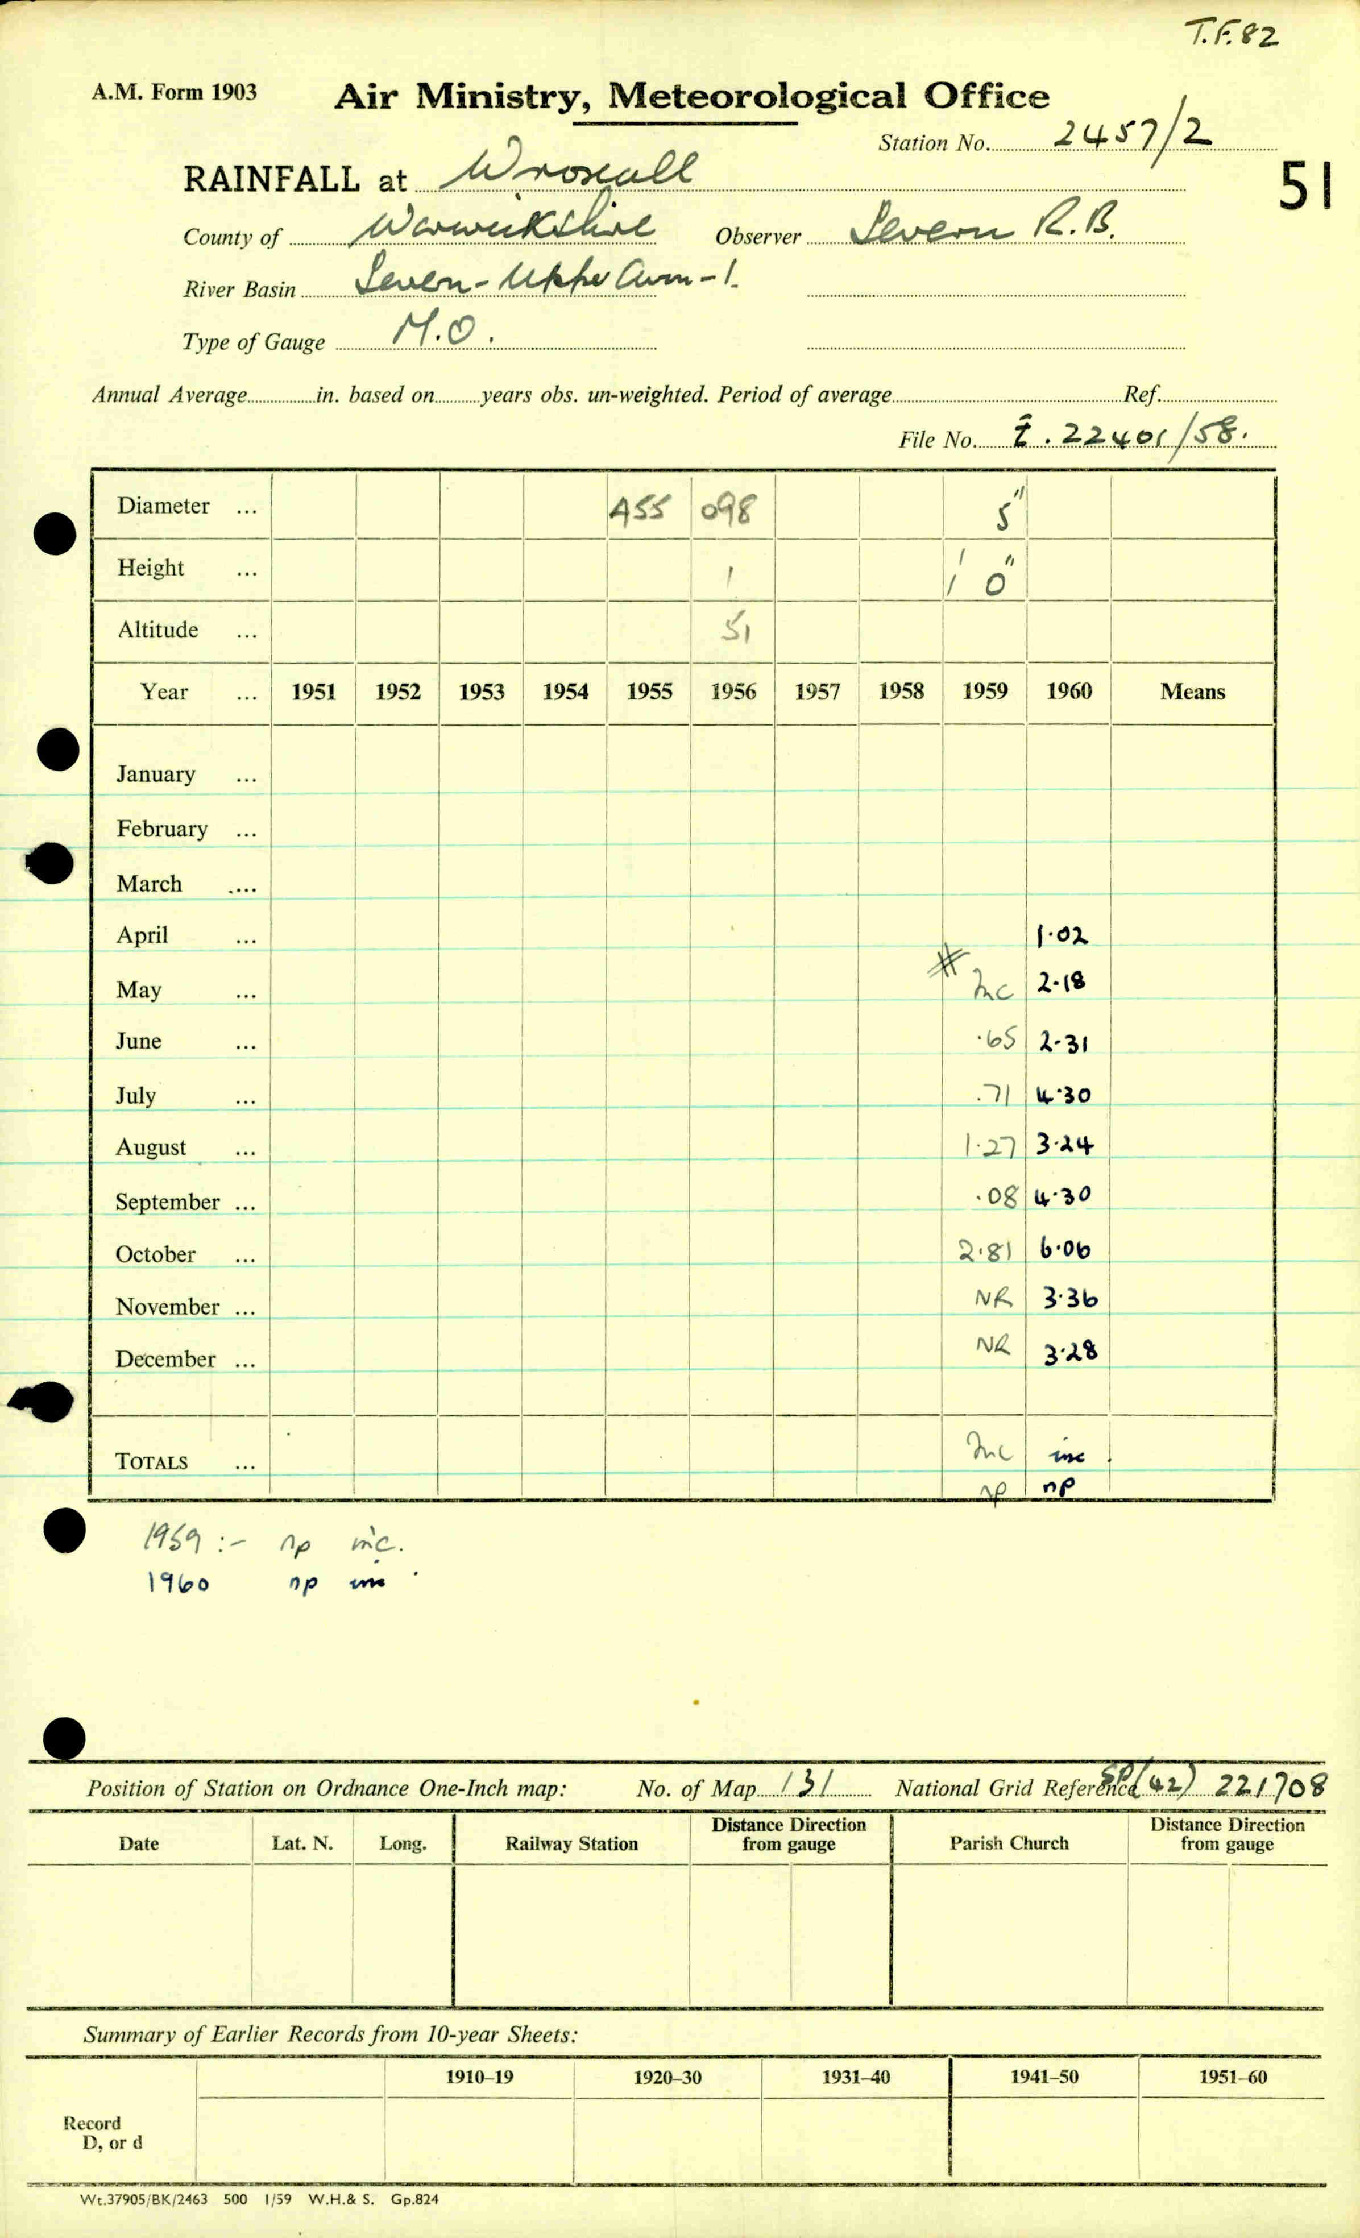 T.F.82
A.M. Form 1903 Air Ministry, Meteorological Office
Station No. 2457/2
RAINFALL at Wroxall
51
County of Warwickshire Observer Severn R.B.
River Basin Severn - Upper Avon - 1.
Type of Gauge M.O.
Annual Average in. based on years obs. un-weighted. Period of average Ref.
File No. 22401/58.
Diameter ... ASS 098 5"
Height ... 1 1' 0"
Altitude ... 51
Year ... 1951 1952 1953 1954 1955 1956 1957 1958 1959 1960 Means
January ...
February ...
March ....
April ... 1·02
May ... # Inc 2·18
June ... ·65 2·31
July ... ·71 4·30
August ... 1·27 3·24
September ... ·08 4·30
October ... 2·81 6·06
November ... NR 3·36
December ... NR 3·28
TOTALS ... Inc inc
np np
1959 :- np inc.
1960 np inc
Position of Station on Ordnance One-Inch map: No. of Map 131 National Grid Reference SP(42) 221708
Date Lat. N. Long. Railway Station Distance Direction from gauge Parish Church Distance Direction from gauge
Summary of Earlier Records from 10-year Sheets:
1910–19 1920–30 1931–40 1941–50 1951–60
Record
D, or d
Wt.37905/BK/2463 500 1/59 W.H.& S. Gp.824